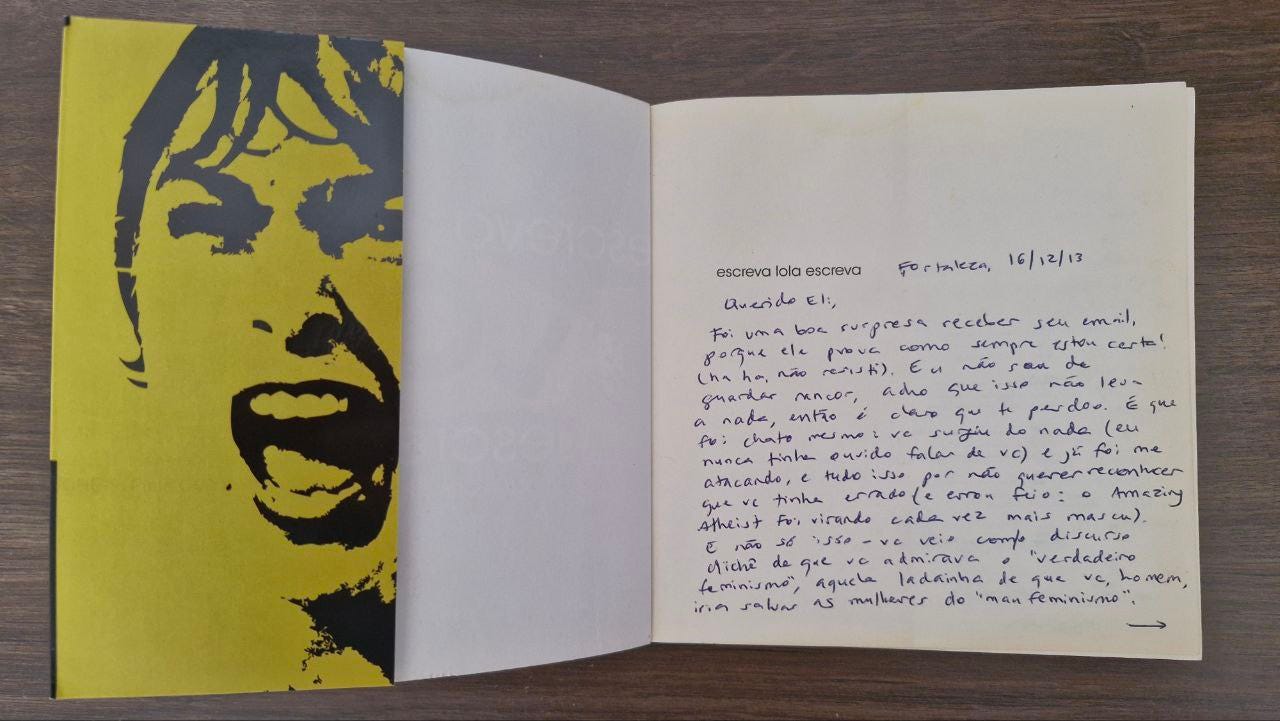 escreva lola escreva
Fortaleza, 16/12/13
Querido Eli,
Foi uma boa surpresa receber seu email,
porque ele prova como sempre estou certa!
(ha ha, não resisti). Eu não sou de
guardar rancor, acho que isso não leva
a nada, então é claro que te perdoo. É que
foi chato mesmo: vc surgiu do nada (eu
nunca tinha ouvido falar de vc) e já foi me
atacando, e tudo isso por não querer reconhecer
que vc tinha errado (e errou feio: o Amazing
Atheist foi virando cada vez mais mascu).
E não só isso – vc veio com o discurso
clichê de que vc admirava o "verdadeiro
feminismo", aquela ladainha de que vc, homem,
iria salvar as mulheres do "mau feminismo".
→